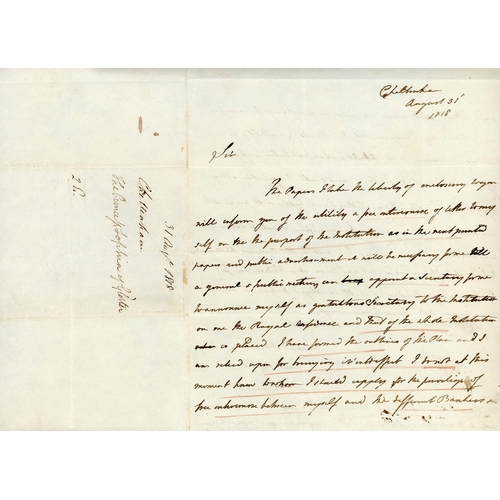 Cheltenham
August 31st
1818
Sir
The Papers I take the liberty of enclosing to you
will inform you of the utility a free intercourse of letter to my
self on the the purport of the Institution as in the next printed
papers and public advertisement it will be necessary for me till
a general & public meeting can appoint a Secretary for me
to announce myself as gratuitous Secretary to the Institution
on me the Royal confidence and that of the whole Institution
is placed I have formed the outlines of the Plan and I
am relied upon for bringing it into effect I do not at this
moment know to whom I should apply for the privilege of
free intercourse between myself and the different Bankers
Cheltenham
31 Augt 1818